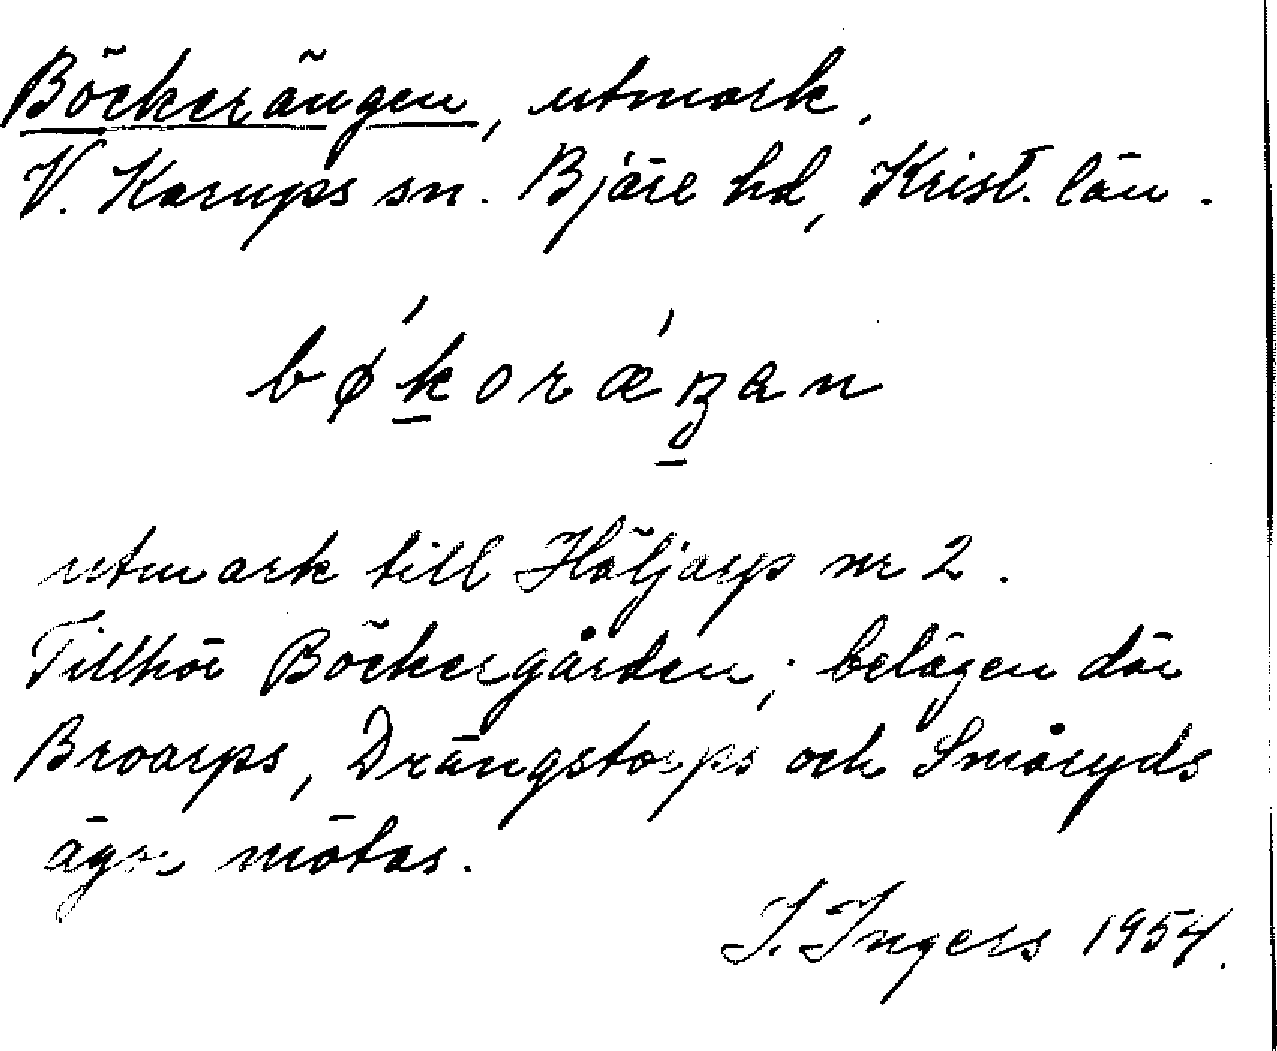 Böckerängen, utmark.
V. Karups sn. Bjäre hd, Krist. län.
bǿkorǽŋan
utmark till Häljarp nr 2.
Tillhör Böckergården; belägen där
Broarps, Drängstorps och Småryds
ägor mötas.
I. Ingers 1954.